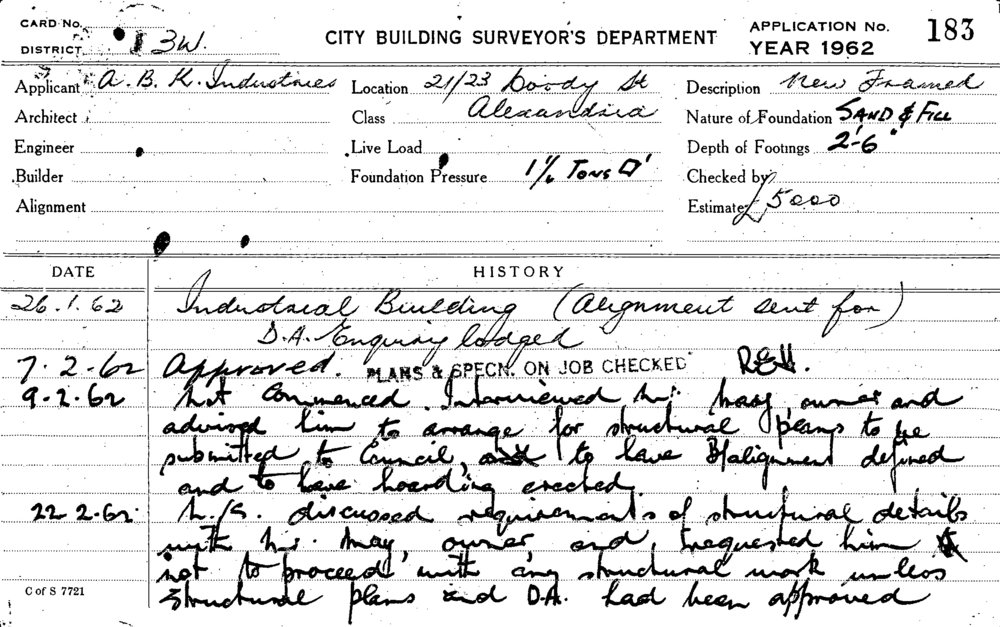 CARD No.
DISTRICT 3W.
CITY BUILDING SURVEYOR'S DEPARTMENT
APPLICATION No. 183
YEAR 1962
Applicant A. B. K. Industries
Location 21/23 Doody St
Description New Framed
Architect
Class Alexandria
Nature of Foundation SAND & FILL
Engineer
Live Load
Depth of Footings 2'-6"
Builder
Foundation Pressure TONS
Checked by
Alignment
Estimate £5000
DATE HISTORY
26.1.62 Industrial Building (Alignment sent for)
D.A. Enquiry lodged
7.2.62 Approved. PLANS & SPECN. ON JOB CHECKED
9.2.62 Not commenced. Interviewed Mr. owner and
advised him to arrange for structural plans to be
submitted to Council, to have B/alignment defined
and to have hoarding erected.
22.2.62 discussed requirements of structural details
with Mr. May, owner, and requested him
not to proceed with any structural work unless
structural plans and D.A. had been approved
C of S 7721